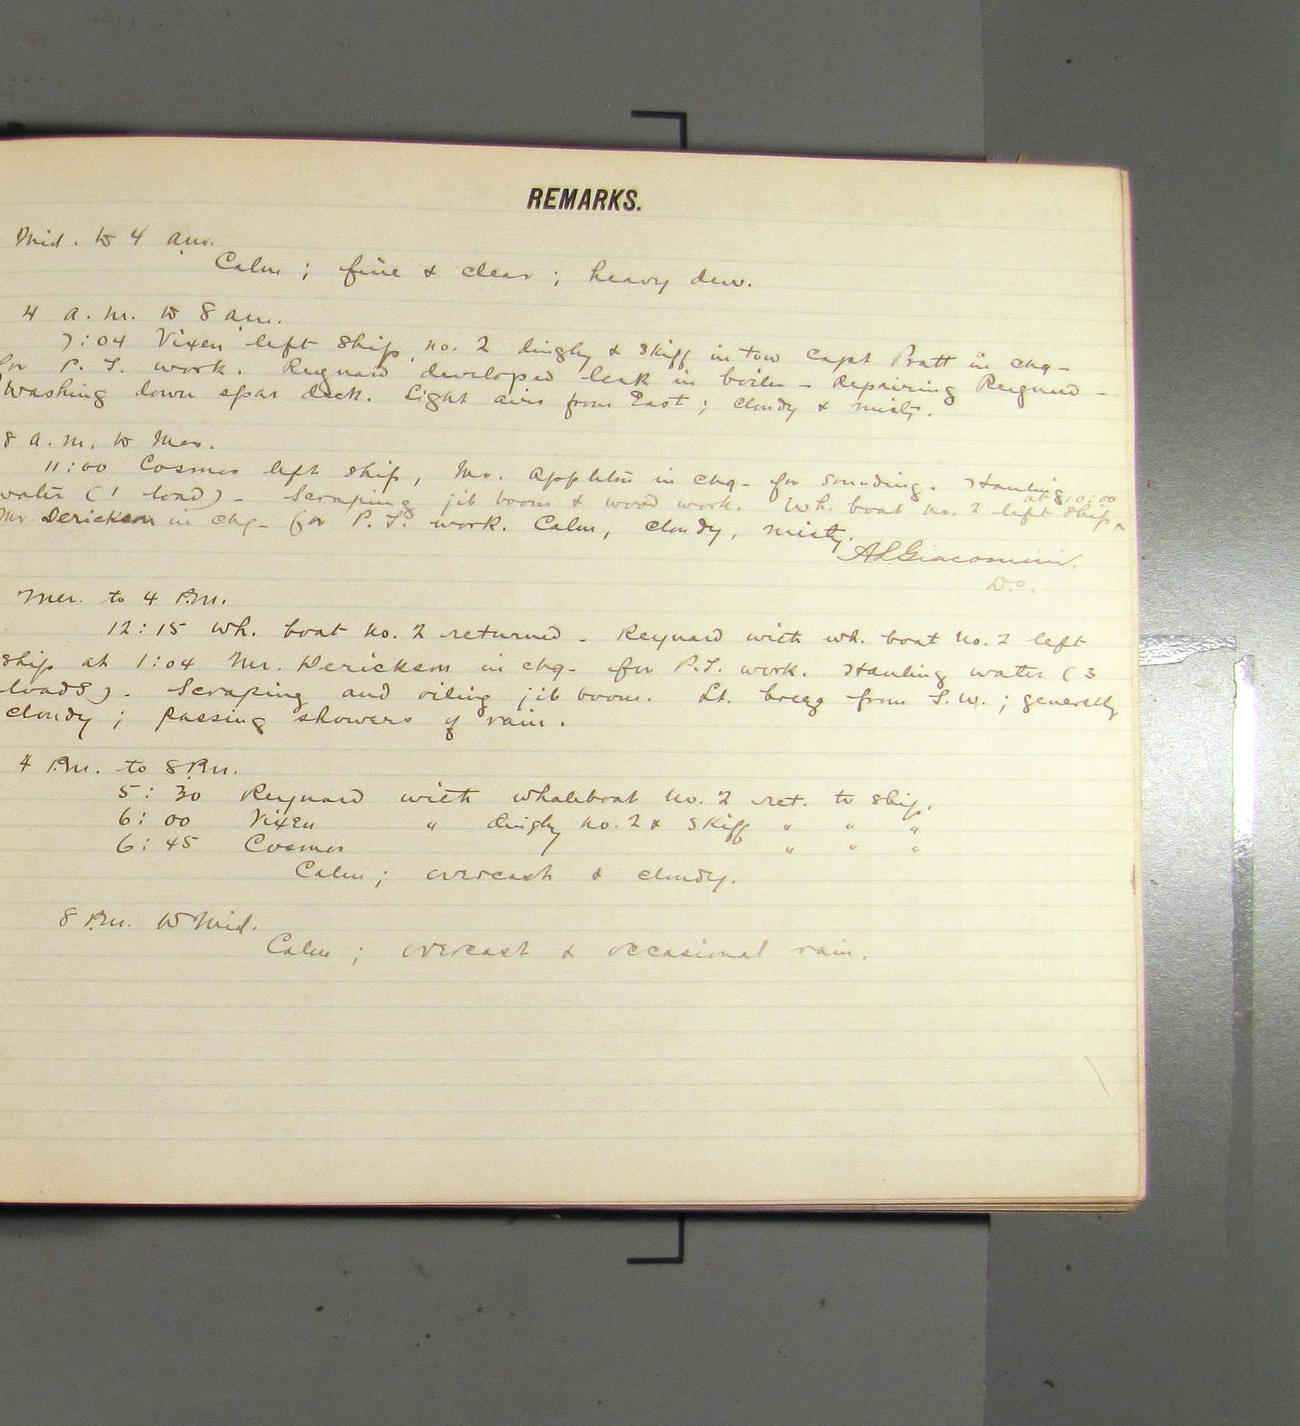 REMARKS.
Mid. to 4 am.
Calm ; fine & clear ; heavy dew.
4 a.m. to 8 am.
7:04 Vixen left ship, no. 2 dinghy & skiff in tow Capt Pratt in chg-
for P. T. work. Reynard developed leak in boiler - Repairing Reynard -
Washing down spar deck. Light airs from East ; cloudy & misty.
8 a.m. to Mer.
11:00 Cosmos left ship, Mr. Appleton in chg- for sounding. Hauling
water (1 load) - Scraping jib boom & wood work. Wh. boat no. 2 left ship ^ at 10:00
Mr. Derickson in chg- for P.T. work. Calm, cloudy, misty.
A L Giacomini
D.O.
Mer. to 4 P.m.
12:15 Wh. boat no. 2 returned - Reynard with wh. boat no. 2 left
ship at 1:04 Mr. Derickson in chg- for P.T. work. Hauling water (3
loads) - Scraping and oiling jib boom. Lt. breeze from S.W. ; generally
cloudy ; passing showers of rain.
4 P.m. to 8 P.m.
5:30 Reynard with whaleboat no. 2 ret. to ship.
6:00 Vixen " dinghy no. 2 & skiff " " "
6:45 Cosmos " " "
Calm ; overcast & cloudy.
8 P.m. to Mid.
Calm ; overcast & occasional rain.